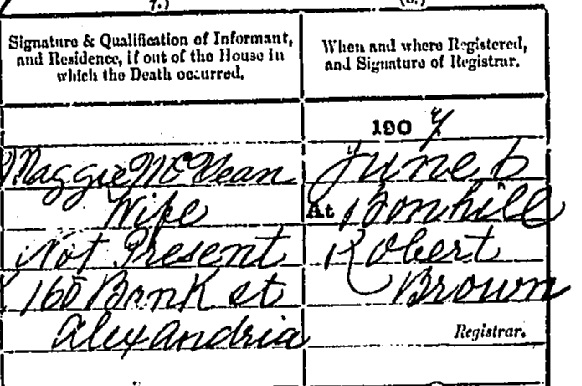 7.)
(8.)
Signature & Qualification of Informant,
and Residence, if out of the House in
which the Death occurred.
When and where Registered,
and Signature of Registrar.
Maggie McVean
Wife
Not Present
160 Bank st
Alexandria
1907
June 6
At Bonhill
Robert
Brown
Registrar.